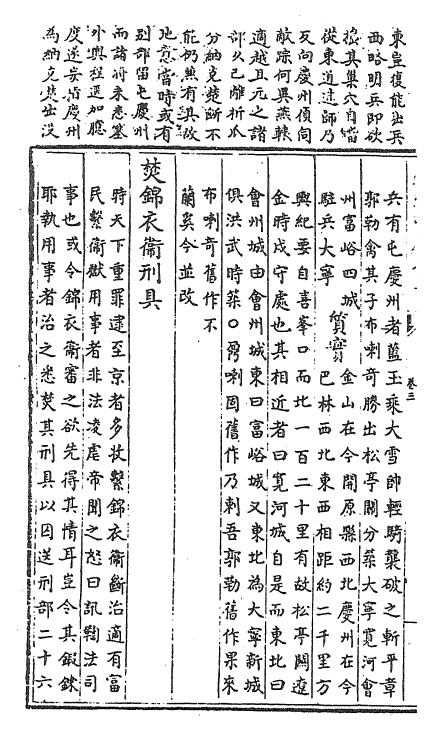 東豈復能出兵
西略明兵即欲
搗其巢穴自當
從東道進師乃
反向慶州偵伺
敵踪何異燕轅
適越且元之諸
部久已離析瓜
分納克楚斷不
能仍兼有其故
地意當時或有
别部留屯慶州
而諸將未悉塞
外輿程遥加臆
度遂妄指慶州
為納克楚出沒
兵有屯慶州者藍玉乘大雪帥輕騎襲破之斬平章
郭勒禽其子布喇奇勝出松亭關分築大寧寬河會
州富峪四城
駐兵大寧
質實
金山在今開原縣西北慶州在今
巴林西北東西相距約二千里方
輿紀要自喜峯口而北一百二十里有故松亭關遼
金時戍守處也其相近者曰寬河城自是而東北曰
會州城由會州城東曰富峪城又東北為大寧新城
俱洪武時築○鼐喇固舊作乃剌吾郭勒舊作果來
布喇奇舊作不
蘭奚今並改
焚錦衣衞刑具
時天下重罪逮至京者多收繫錦衣衞斷治適有富
民繫衞獄用事者非法凌虐帝聞之怒曰訊鞫法司
事也或令錦衣衞審之欲先得其情耳豈令其鍜鍊
耶執用事者治之悉焚其刑具以囚送刑部二十六
卷三